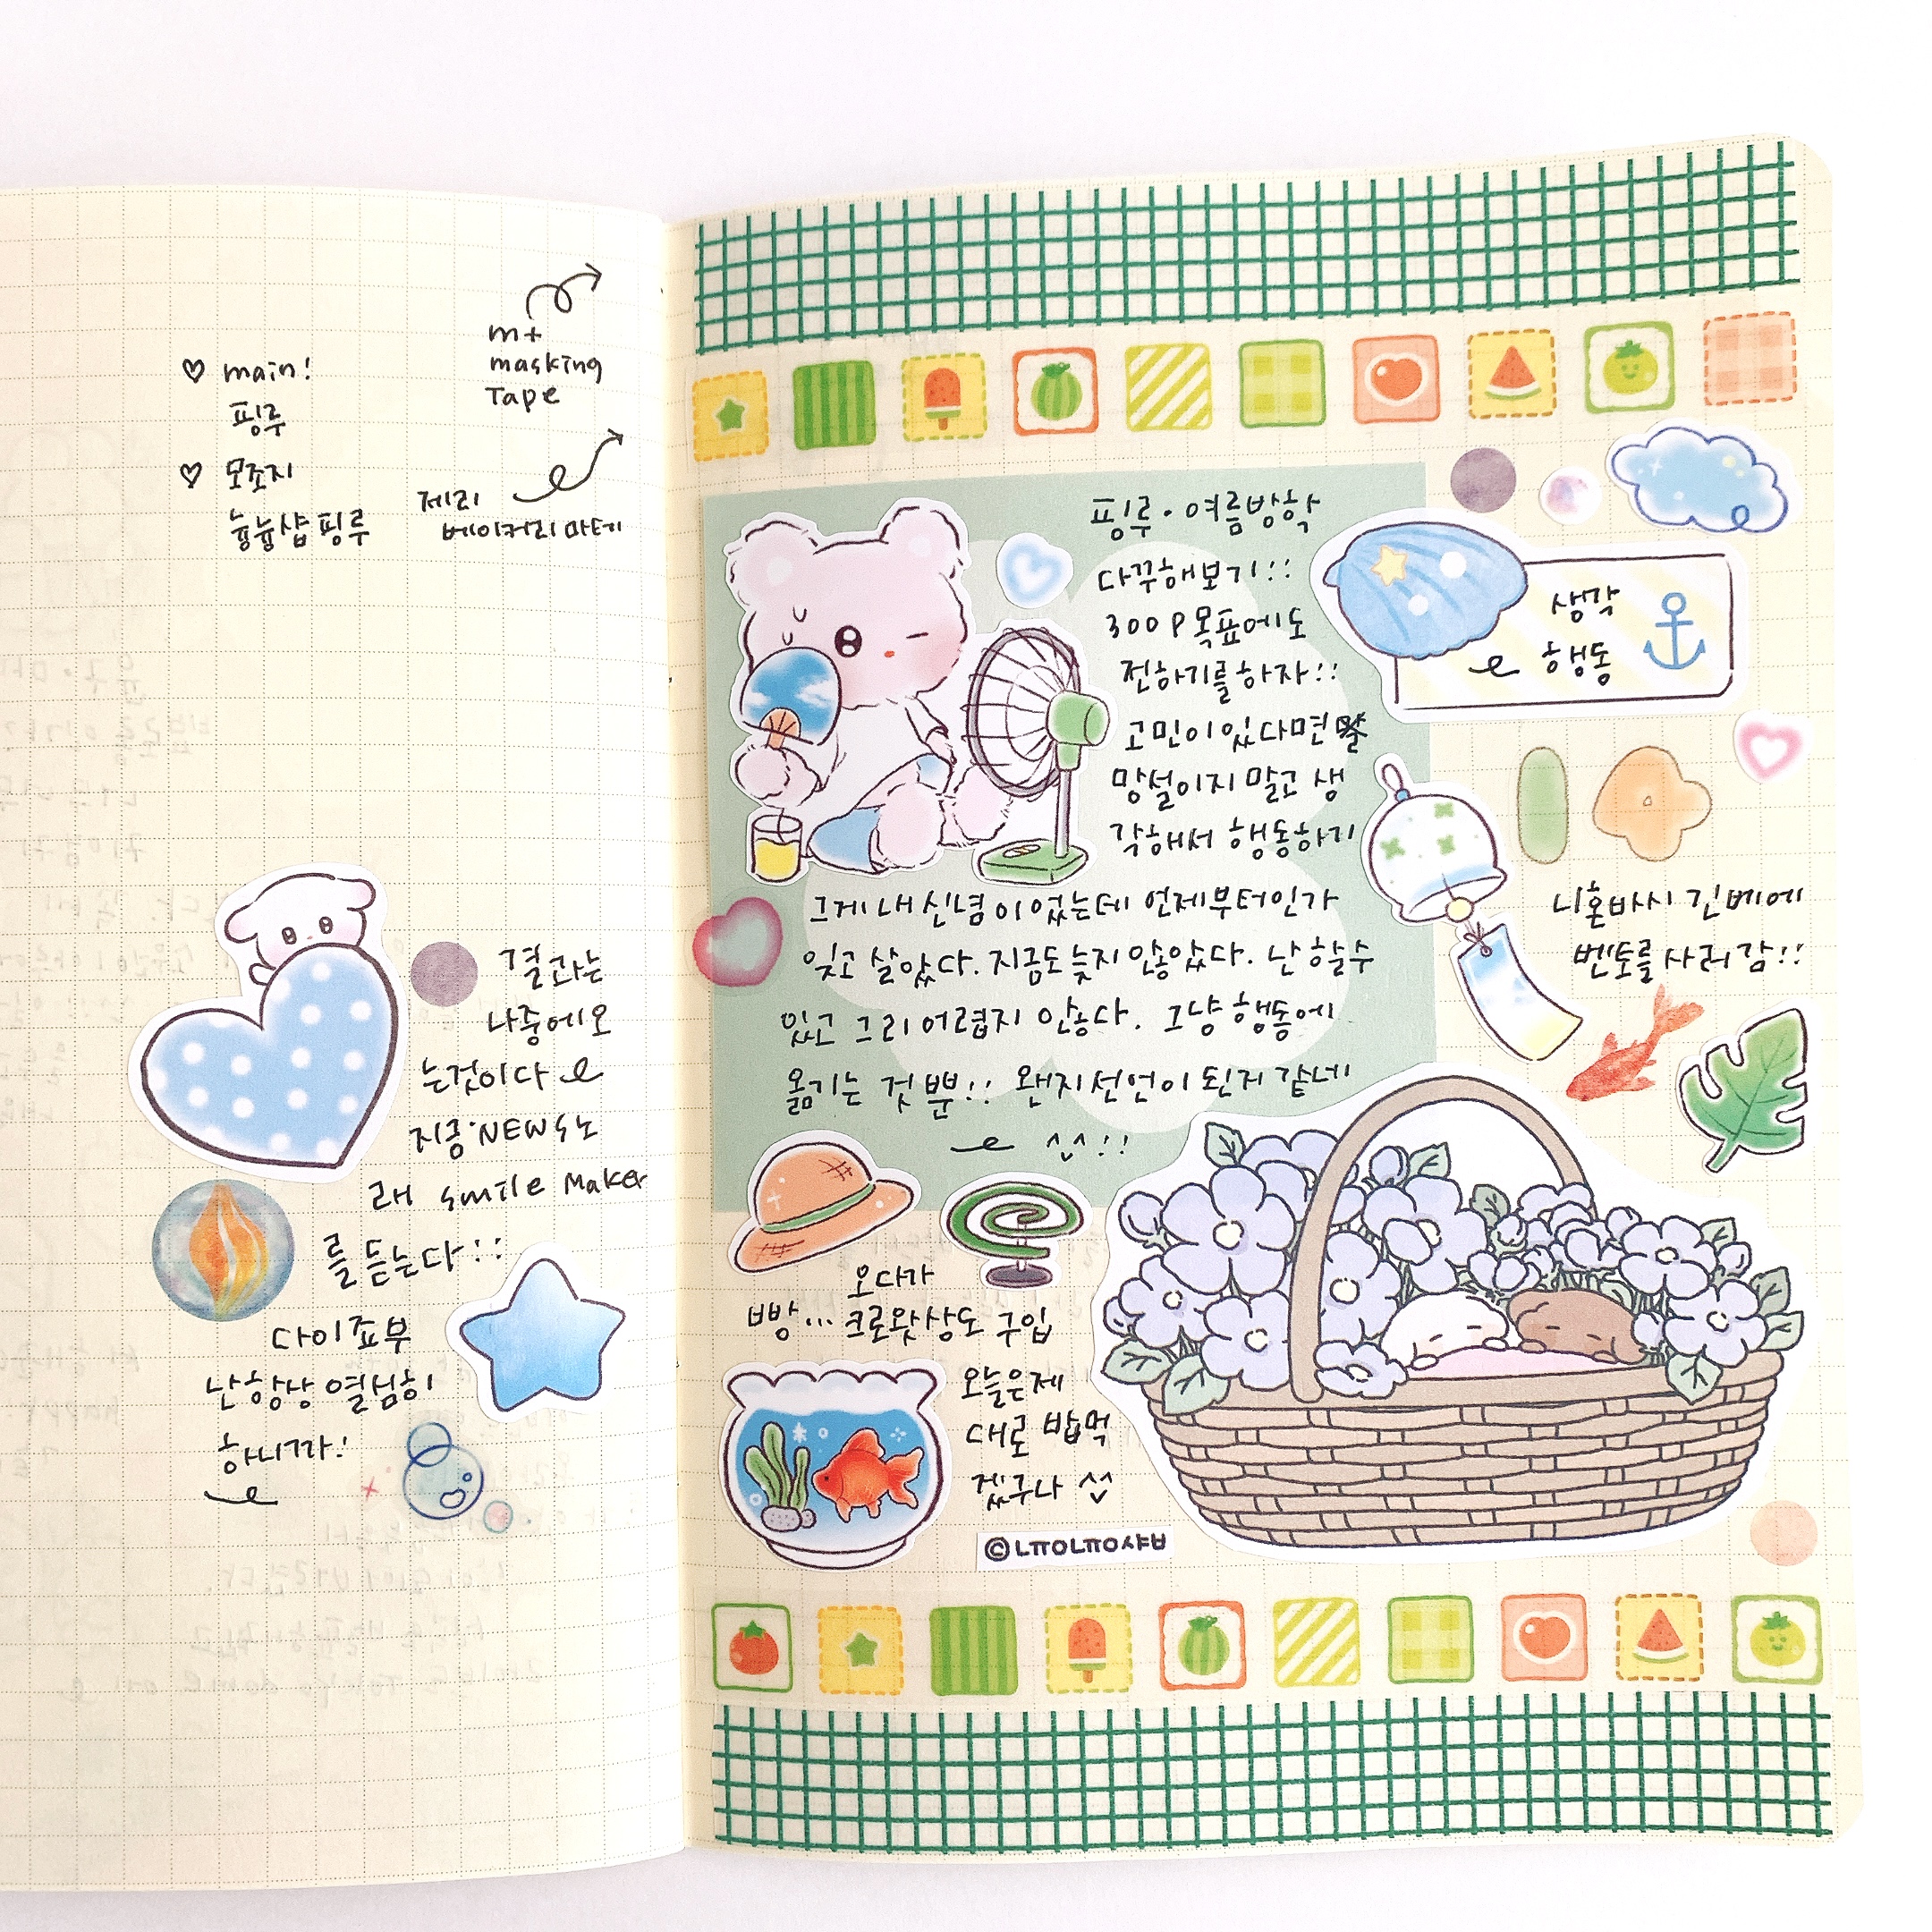 m+
masking
Tape
♡ main!
핑루
♡ 모조지
늉늉샵 핑루
제리
베이커리마테
결과는
나중에오
는것이다
지금·NEW노
래 smile Maker
를 듣는다!!
다이죠부
난항상 열심히
하니까!
핑루·여름방학
다꾸해보기!!
300P목표에도
전하기를하자!!
고민이있다면
망설이지 말고 생
각해서 행동하기
그게내신념이었는데 언제부터인가
잊고 살았다. 지금도늦지않았다. 난 할수
있고 그리어렵지 않다. 그냥 행동에
옮기는 것뿐!! 왠지선언이 된거 같네
ㅅㅅ!!
생각
행동
니혼바시 긴베에
벤토를사러감!!
오다가
빵... 크로왓상도 구입
오늘은제
대로 밥먹
겠구나 ㅅㅅ
©ㄴㅠㅇㄴㅠㅇ샤ㅂ